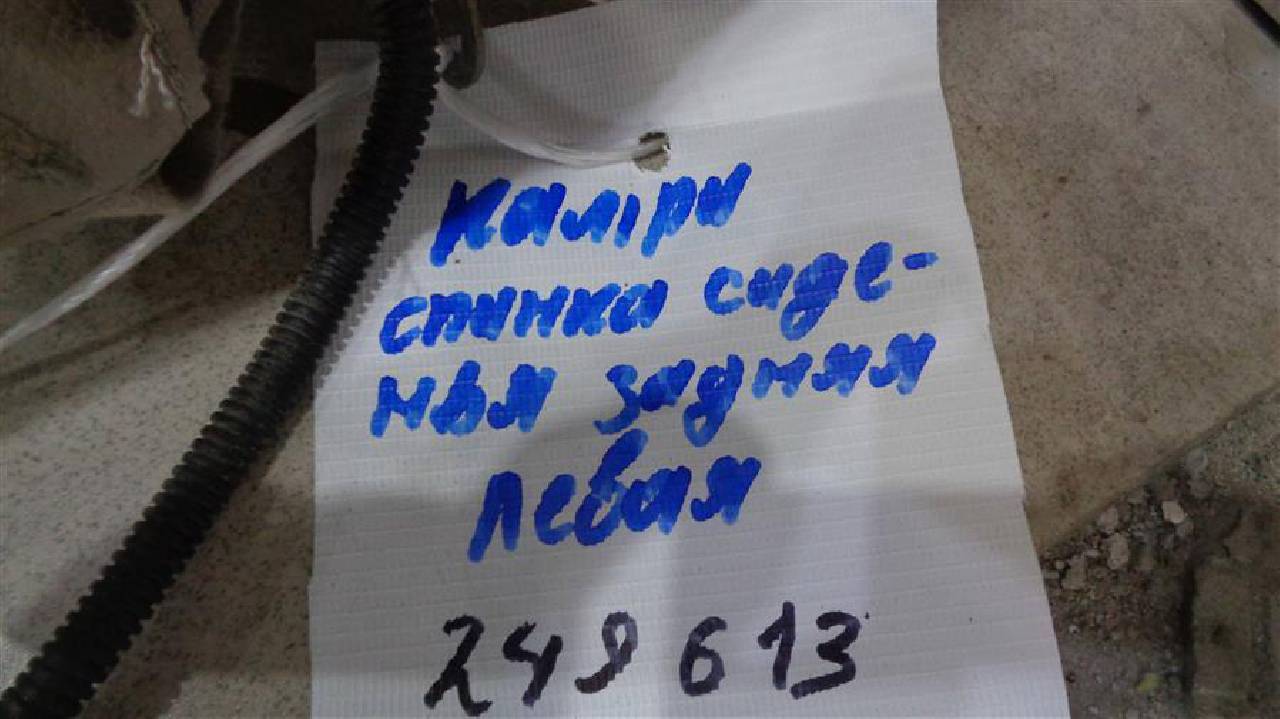 Калри
спинка сиде-
нья задняя
левая
249613